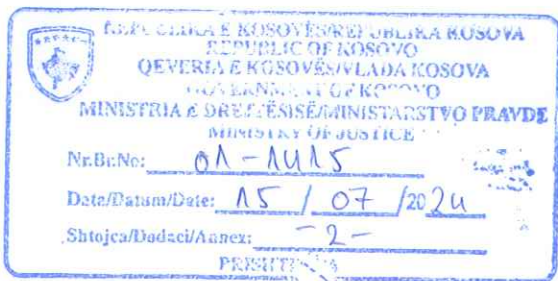 REPUBLIKA E KOSOVËS/REPUBLIKA KOSOVA
REPUBLIC OF KOSOVO
QEVERIA E KOSOVËS/VLADA KOSOVA
GOVERNMENT OF KOSOVO
MINISTRIA E DREJTËSISË/MINISTARSTVO PRAVDE
MINISTRY OF JUSTICE
Nr.Br.No: 01-1415
Data/Datum/Date: 15 / 07 /2024
Shtojca/Dodaci/Annex: -2-
PRISHTINA